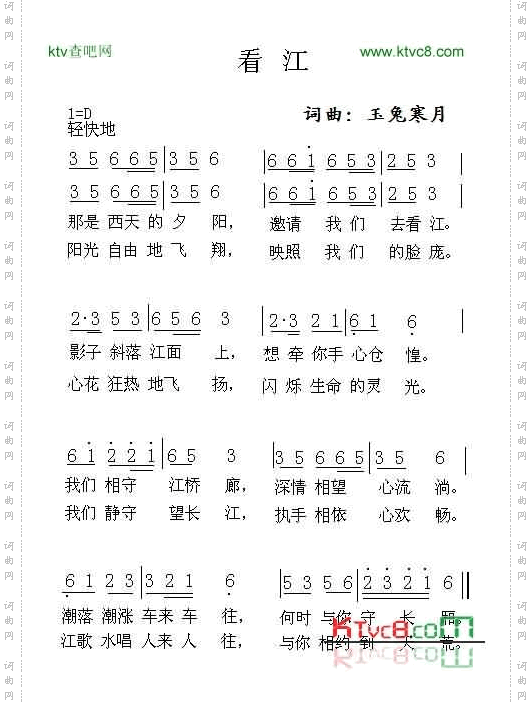 ktv查吧网 www.ktvc8.com
看江
1=D 词曲：玉兔寒月
轻快地
3 5 6 6 5 | 3 5 6 6 6 1 6 5 3 2 5 3 |
3 5 6 6 5 | 3 5 6 6 6 1 6 5 3 2 5 3 |
那是 西天 的 夕 阳， 邀请 我 们 去看 江。
阳光 自由 地 飞 翔， 映照 我 们 的脸 庞。
2·3 5 3 | 6 5 6 3 2·3 2 1 | 6 1 6 |
影子 斜落 江面 上， 想 牵 你手 心仓 惶。
心花 狂热 地飞 扬， 闪 烁 生命 的灵 光。
6 1 2 2 1 | 6 5 3 3 5 6 6 5 | 3 5 6 |
我们 相守 江桥 廊， 深情 相望 心流 淌。
我们 静守 望长 江， 执手 相依 心欢 畅。
6 1 2 3 | 3 2 1 6 5 3 5 6 | 2 3 2 1 6 ‖
潮落 潮涨 车来 车 往， 何时 与你 守 长
江歌 水唱 人来 人 往， 与你 相约 到 荒。
KTvc8.com
词曲网
词曲网
词曲网
词曲网
词曲网
词曲网
词曲网
词曲网
词曲网
词曲网
词曲网
词曲网